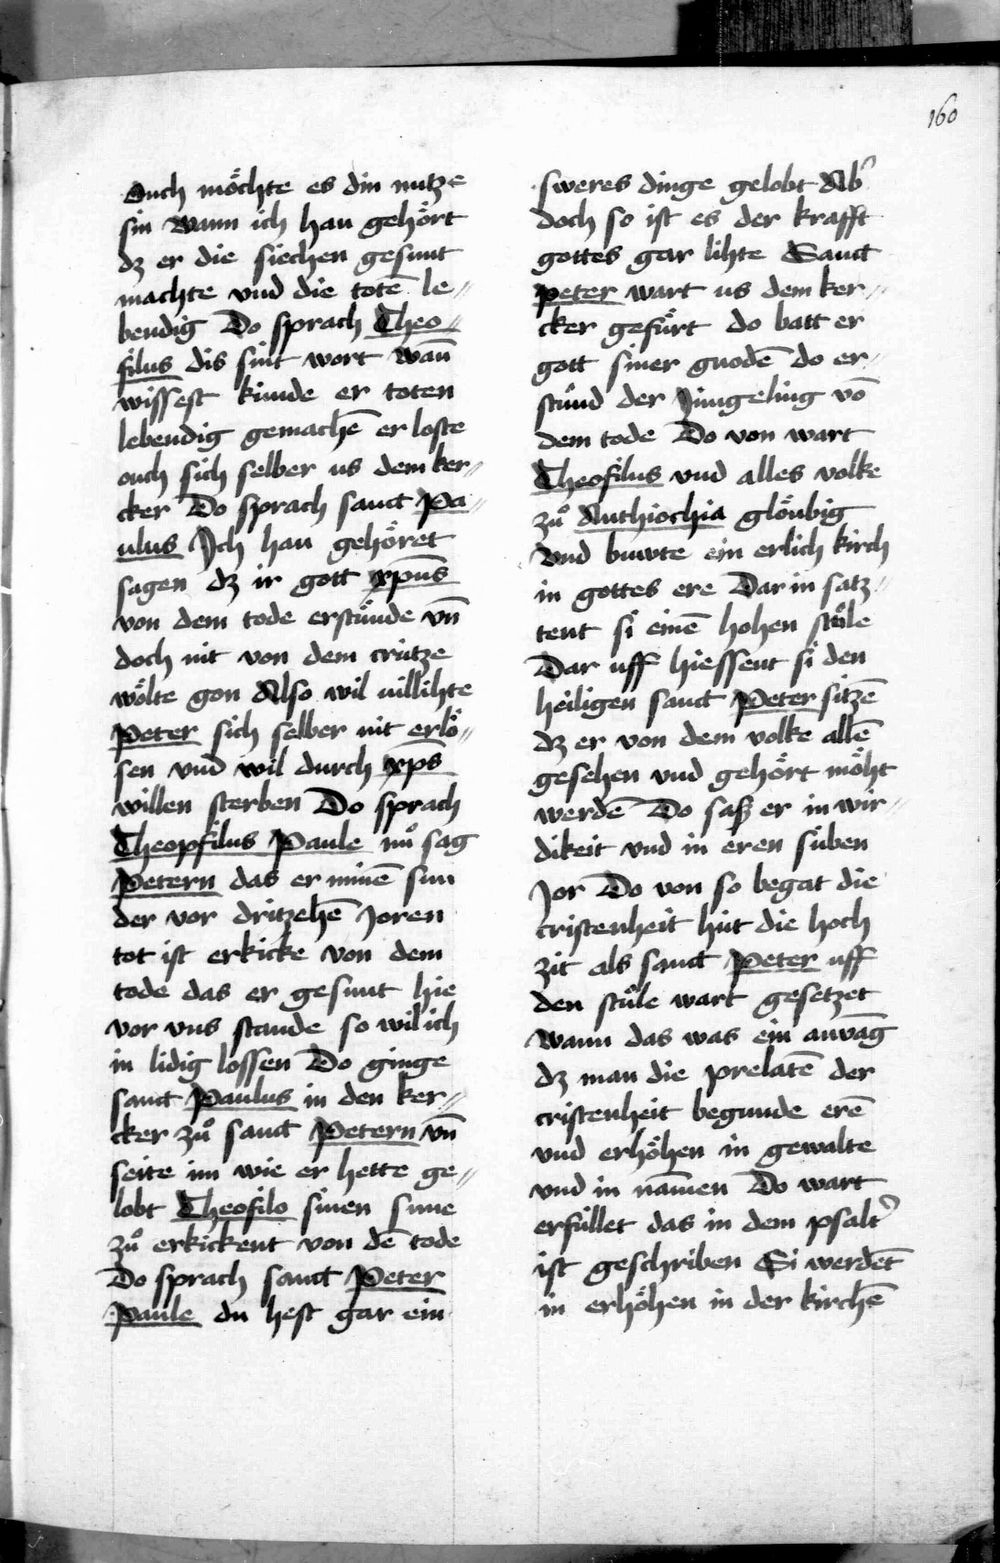 160
Ouch möchte es din nutze
sin Wann ich han gehört
dz er die siechen gesunt
machte vnd die totē le//
bendig Do sprach Theo//
filus dis sint wort wan̄
wissest kunde er toten
lebendig gemachē er loste
ouch sich selber us dem ker//
cker Do sprach sanct Pa//
ulus Jch han gehöret
sagen dz ir gott xp̄us
von dem tode erstůnde vn̄
doch nit von dem crütze
wölte gon Also wil uillihte
Peter sich selber nit erlö//
sen vnd wil durch xp̄s
willen sterben Do sprach
Theopfilus Paule nů sag
Petern das er minē sun
der vor dritzehē Joren
tot ist erkicke von dem
tode das er gesunt hie
vor vns stande so wil ich
in lidig lossen Do ginge
sanct Paulus in den ker//
cker zů sanct Petern vn̄
seite im wie er hette ge//
lobt Theofilo sinen sune
zů erkickent von dē tode
Do sprach sanct Peter
Paule du hest gar ein
sweres dinge gelobt Ab'
doch so ist es der krafft
gottes gar lihte Sanct
peter wart us dem ker//
cker gefürt do batt er
gott siner gnodē do er//
stůnd der Jüngeling vō
dem tode Do von wart
Theofilus vnd alles volke
zů Anthiochia glöubig
Vnd buwte ein erlich kirch
in gottes ere Dar in satz//
tent si einē hohen stůle
Dar uff hiessent si den
heiligen sanct Peter sitzē
dz er von dem volke allē
gesehen vnd gehört möht
werdē Do sasz er in wir//
dikeit vnd in eren süben
Jor Do von so begat die
cristenheit hüt die hoch
zit als sanct Peter uff
den stůle wart gesetzet
Wann das was ein anvāg
dz man die prelatē der
cristenheit begunde erē
vnd erhöhen in gewalte
vnd in nāmen Do wart
erfüllet das in dem psalt'
ist geschriben Si werdēt
in erhöhen in der kirchē